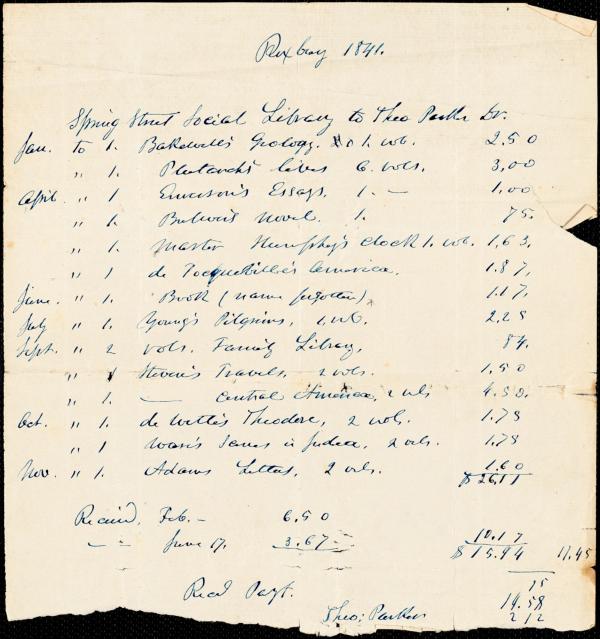 Roxbury 1841.
Spring Street Social Library to Theo Parker Dr.
Jan. to 1. Bakewell's Geology. 1. vol. 2.50
" 1. Plutarch's lives 6. vols. 3,00
April. " 1 Emerson's Essays. 1. — 1,00
" 1. Bulwer's novel. 1. 75.
" 1. Master Humphry's clock 1. vol. 1,63.
" 1 de Tocqueville's America. 1.87.
June. " 1. Book (name forgotten) 1.17.
July " 1. Young's Pilgrims, 1. vol. 2.25
Sept. " 2 vols. Family Library, 84.
" 1 Steven's Travels, — 2 vols. 1,50
" 1. — central America, 2 vols 4.50.
Oct. " 1. de Wette's Theodore, 2 vols. 1.75
" 1 Ware's Scenes in Judea, 2 vols. 1.75
Nov. " 1. Adams Letters, 2 vols. 1.60
$26.11
Receivd, Feb. — 6.50
— June 17. 3.67 10.17
$15.94 11.45
15
14.58
Recd Payt. 212
Theo: Parker